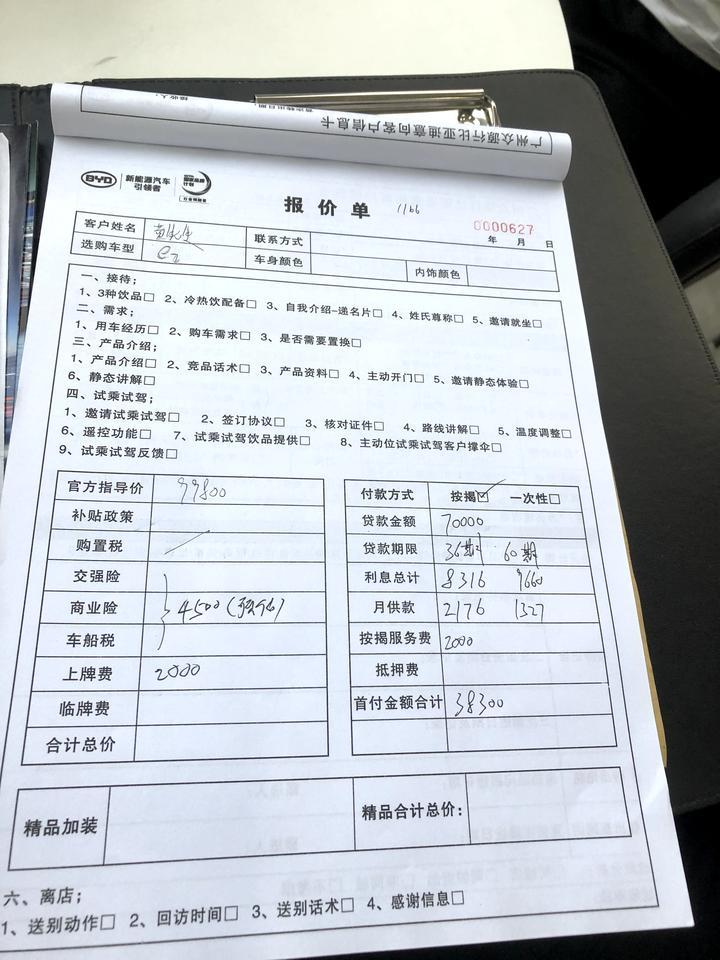 广州众源行比亚迪意向客户信息卡
BYD 新能源汽车 引领者
报价单 1166
0000627
年 月 日
客户姓名 黄先生 联系方式
选购车型 e2 车身颜色 内饰颜色
一、接待；
1、3种饮品□ 2、冷热饮配备□ 3、自我介绍-递名片□ 4、姓氏尊称□ 5、邀请就坐□
二、需求；
1、用车经历□ 2、购车需求□ 3、是否需要置换□
三、产品介绍；
1、产品介绍□ 2、竞品话术□ 3、产品资料□ 4、主动开门□ 5、邀请静态体验□
6、静态讲解□
四、试乘试驾；
1、邀请试乘试驾□ 2、签订协议□ 3、核对证件□ 4、路线讲解□ 5、温度调整□
6、遥控功能□ 7、试乘试驾饮品提供□ 8、主动位试乘试驾客户撑伞□
9、试乘试驾反馈□
官方指导价 99800
补贴政策
购置税
交强险
商业险 4500(预估)
车船税
上牌费 2000
临牌费
合计总价
付款方式 按揭☑ 一次性□
贷款金额 70000
贷款期限 36期 60期
利息总计 8316 9660
月供款 2176 1327
按揭服务费 2000
抵押费
首付金额合计 38300
精品加装 精品合计总价：
六、离店；
1、送别动作□ 2、回访时间□ 3、送别话术□ 4、感谢信息□